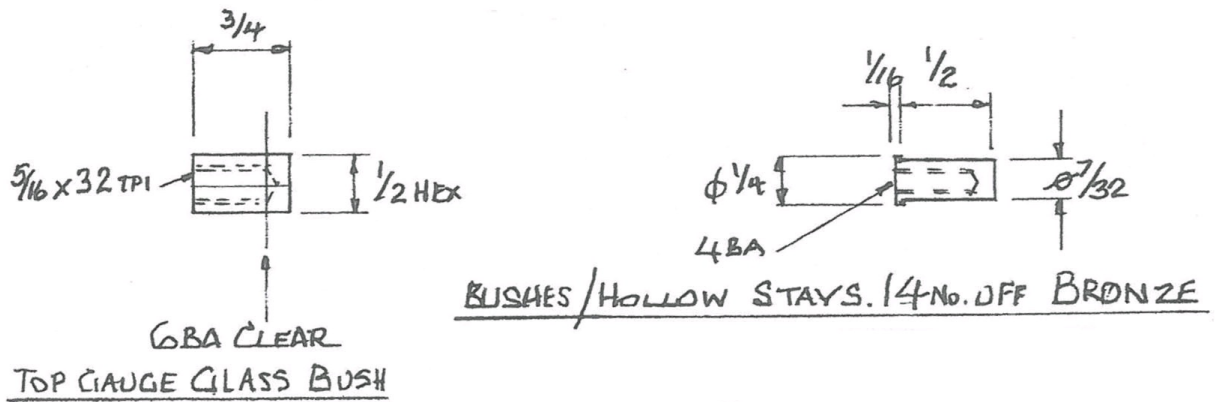 3/4
5/16 X 32 TPI
1/2 HEX
6BA CLEAR
TOP GAUGE GLASS BUSH
1/16 1/2
φ 1/4
ø 7/32
4BA
BUSHES/HOLLOW STAYS. 14 No. OFF BRONZE